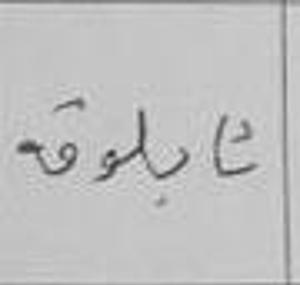 شابلوقه